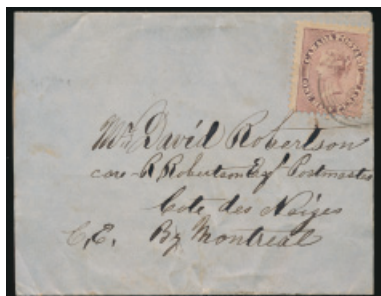 CANADA POSTAGE
Mr David Robertson
care R Robertson Esqr Postmaster
Cote des Neiges
C,E. By Montreal